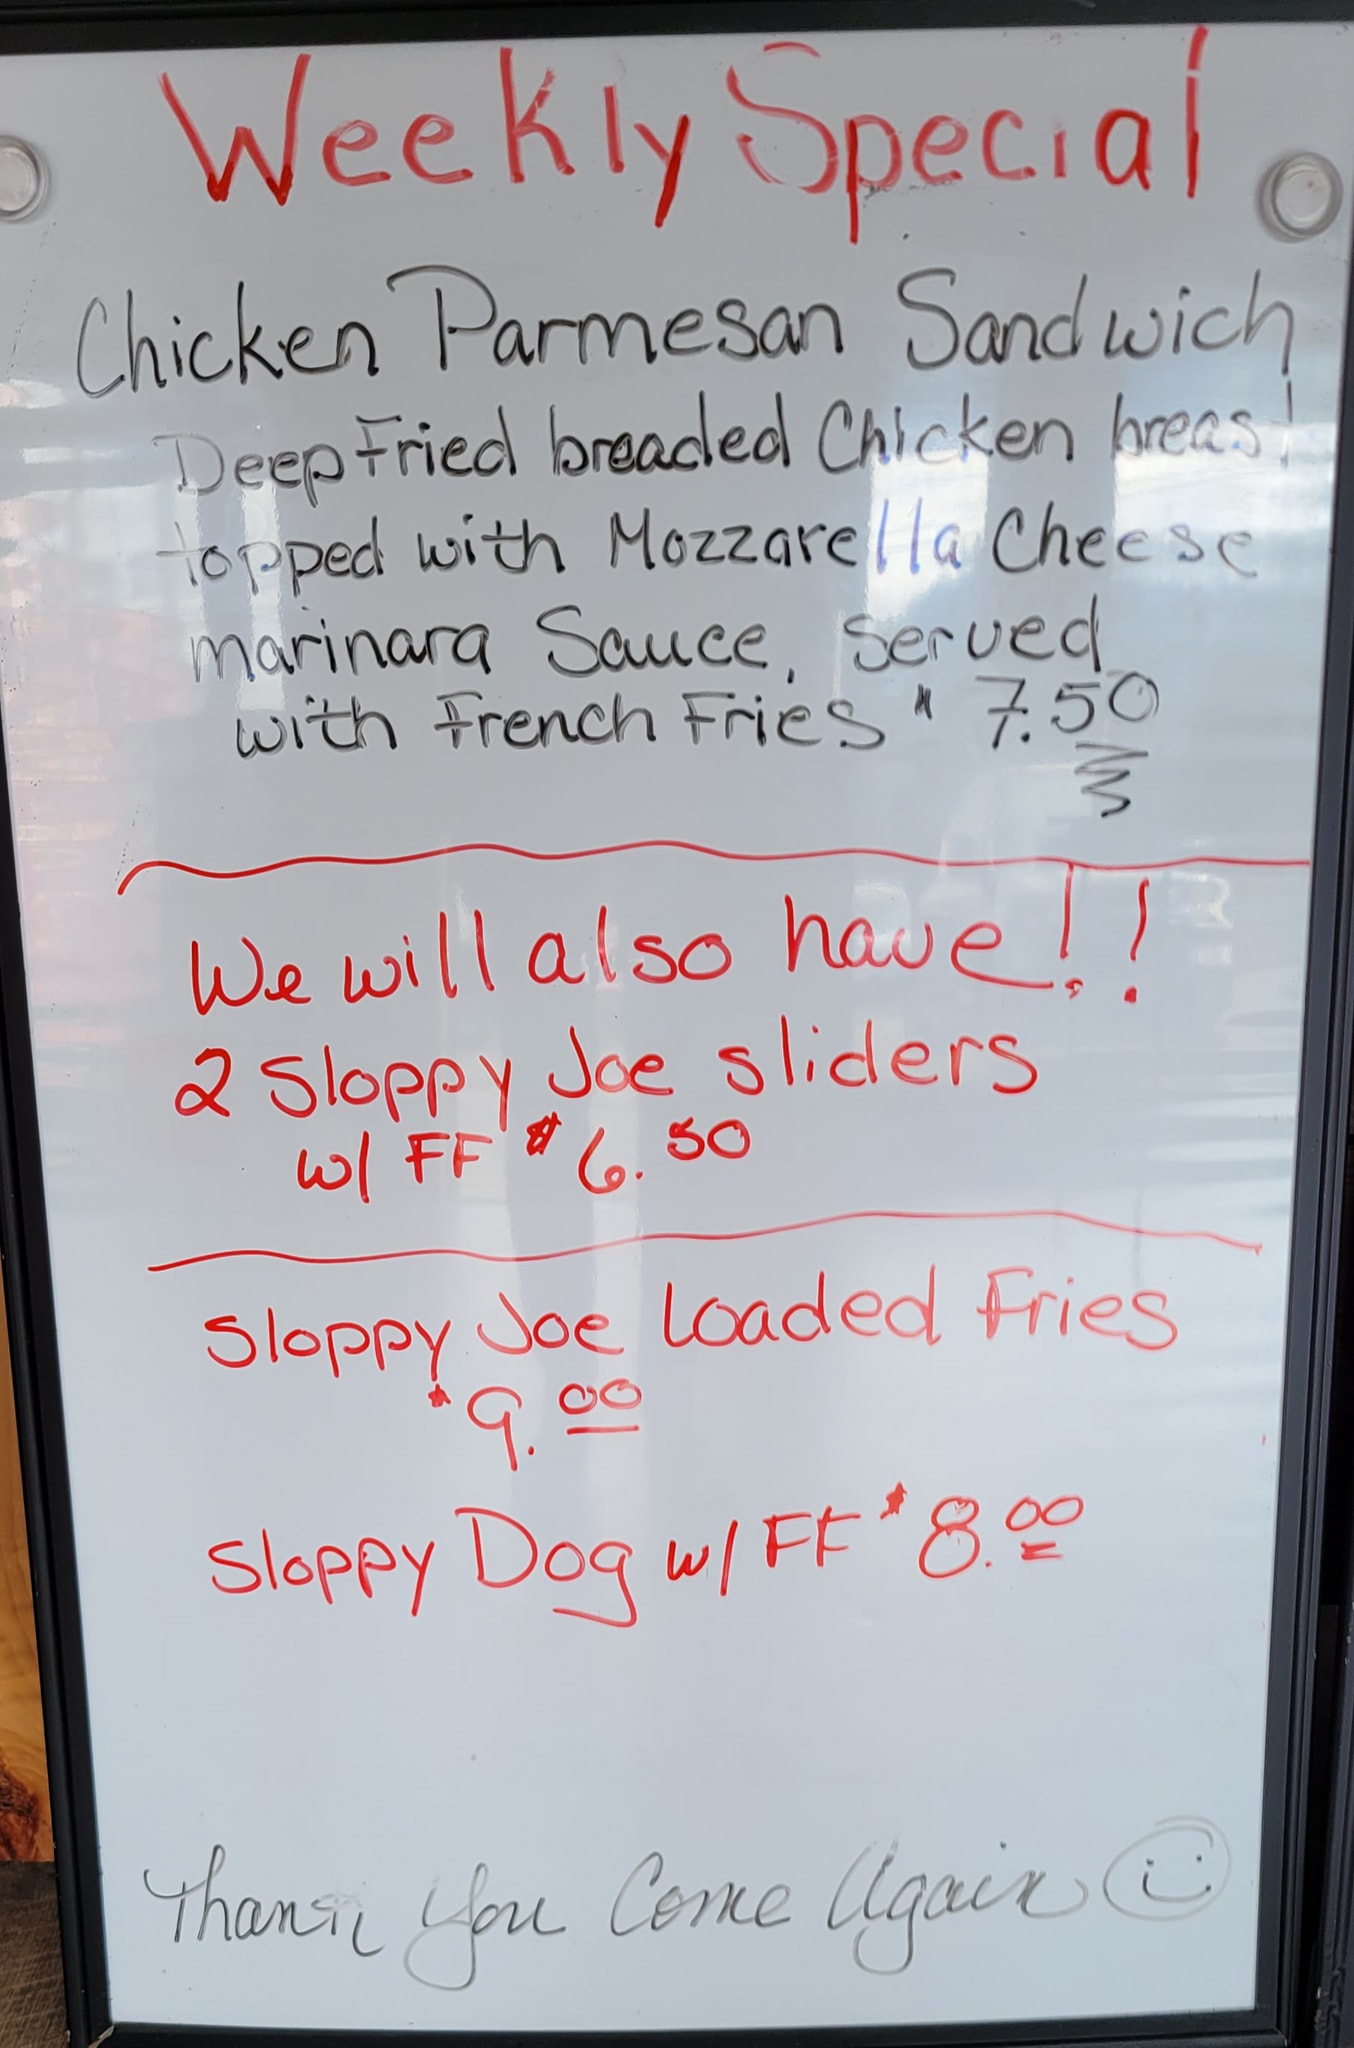 Weekly Special
Chicken Parmesan Sandwich
Deep Fried breaded Chicken breast
topped with Mozzarella Cheese
marinara Sauce, served
with French Fries $7.50
We will also have!!
2 Sloppy Joe sliders
w/ FF $6.50
Sloppy Joe Loaded Fries
$9.00
Sloppy Dog w/ FF $8.00
Thank You Come Again